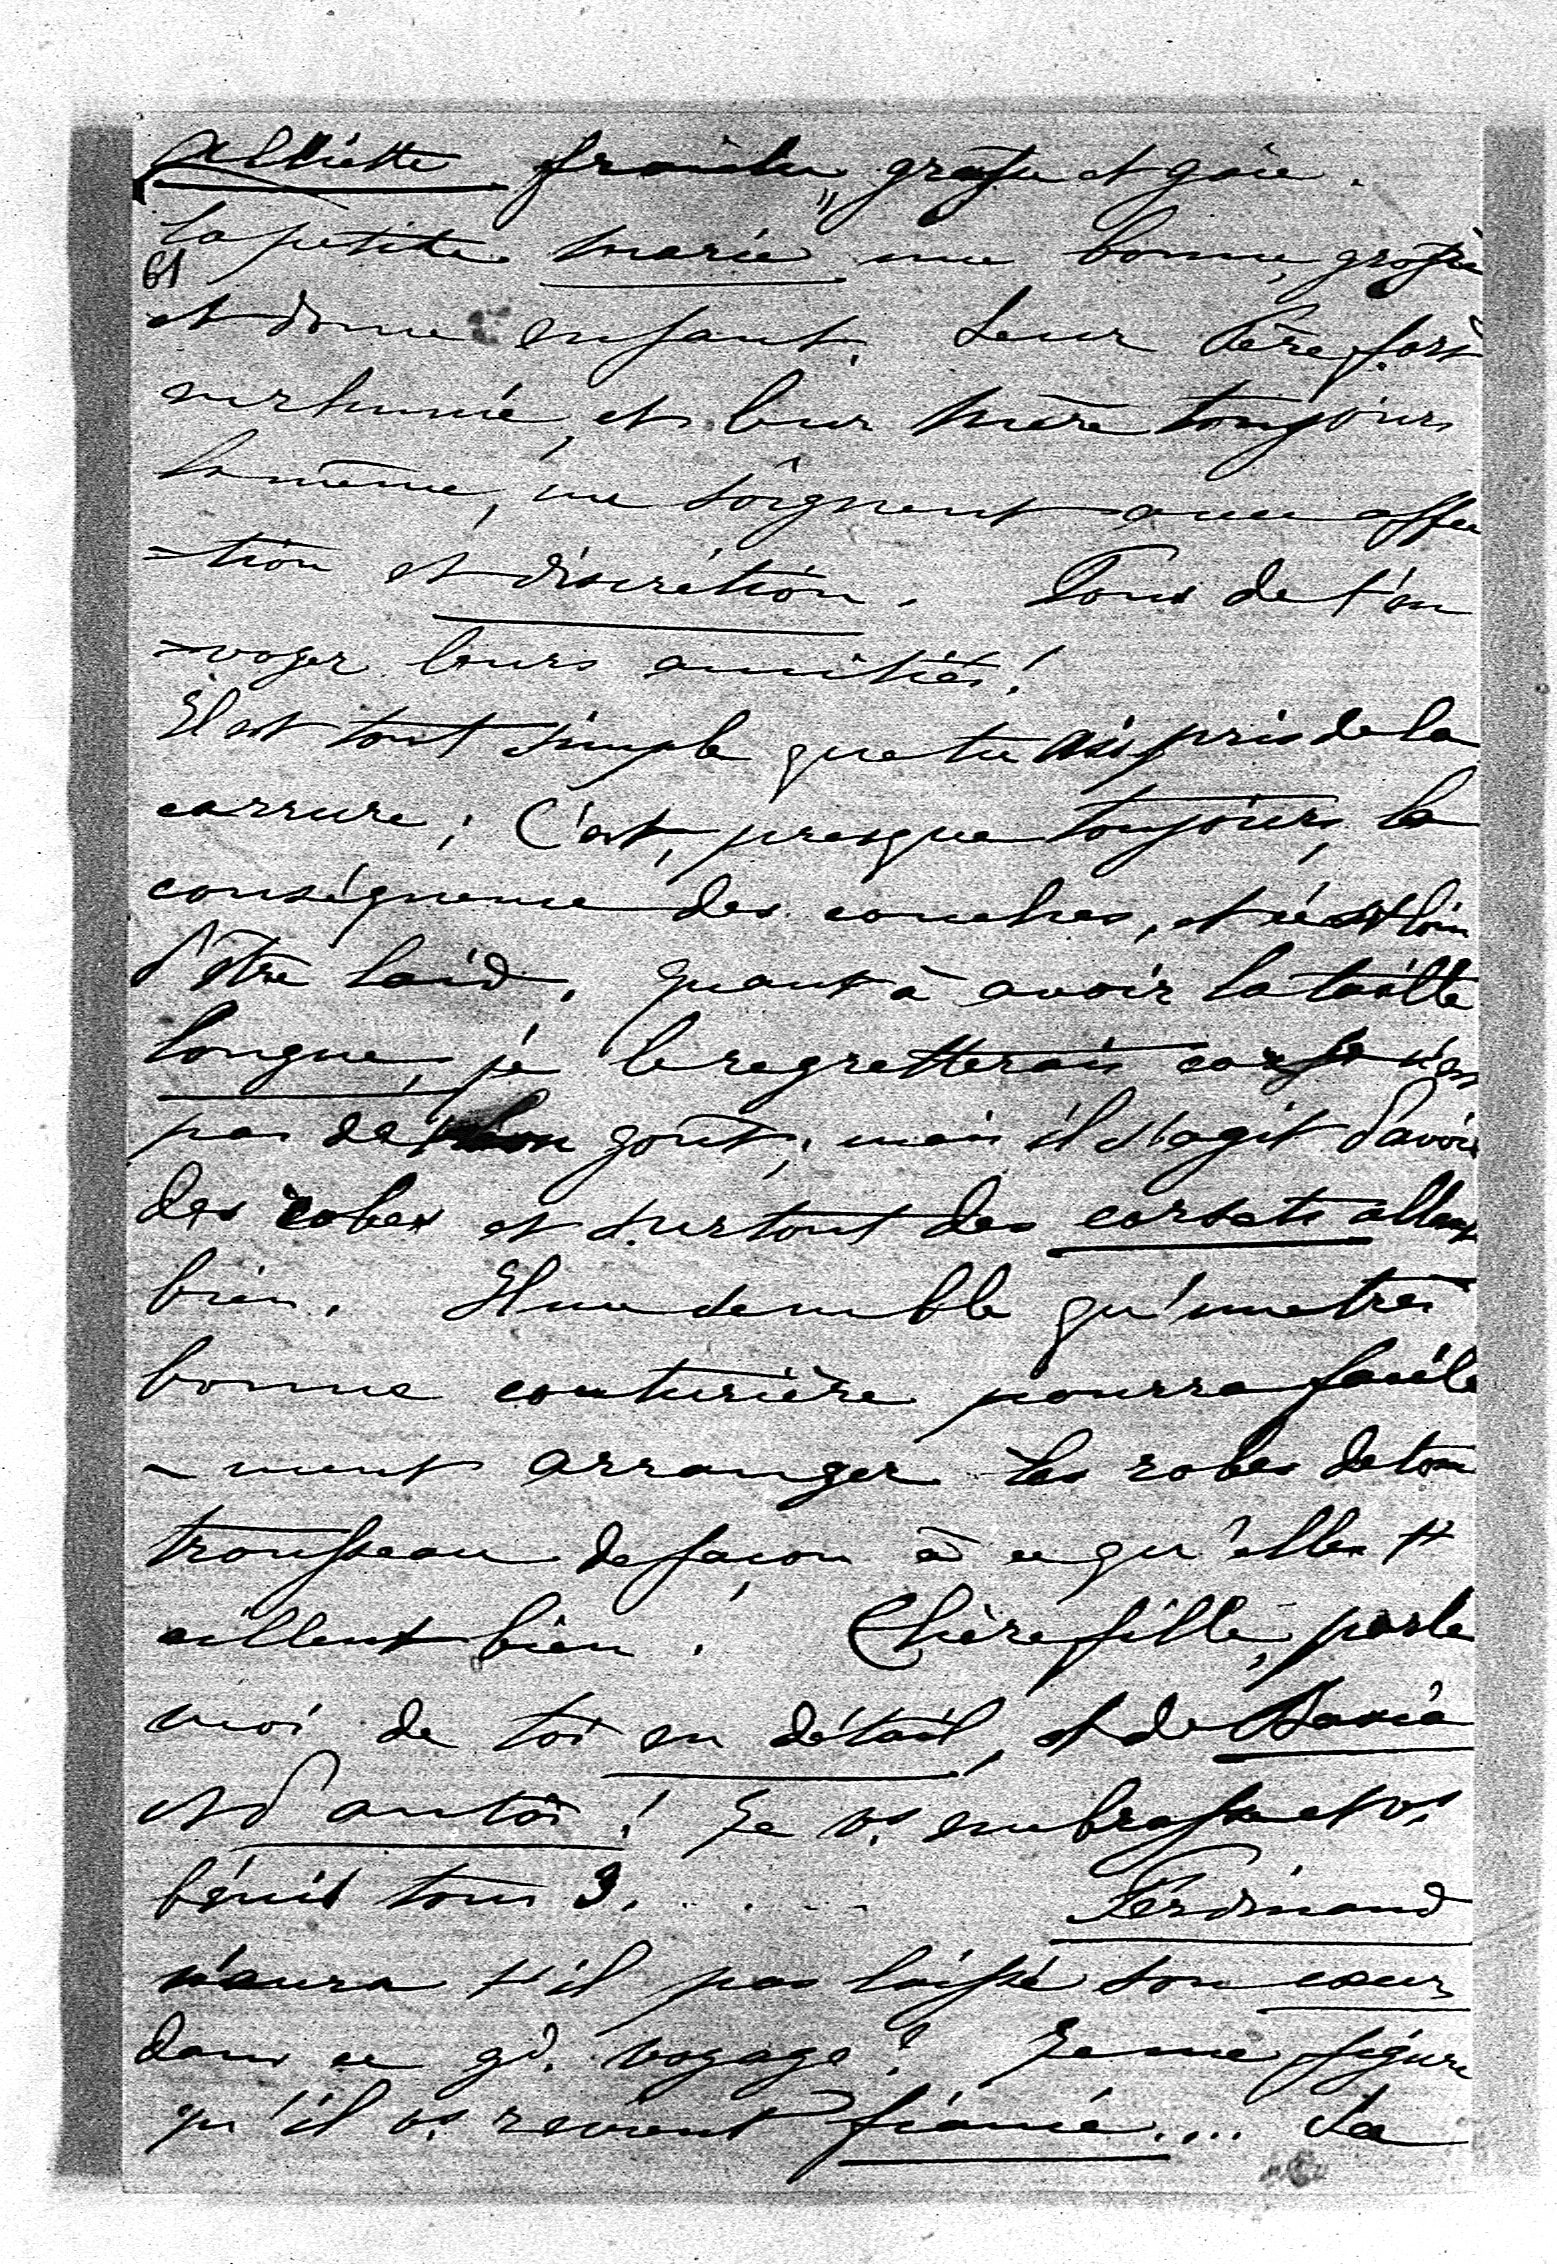 fraîche, grasse et gaie.
la petite Marie une bonne, grosse
61
et douce enfant. Leur Père fort
enrhumé, et leur Mère toujours
la même, me soignent avec affec
-tion et discrétion. Tous de t'en
-voyer leurs amitiés!
Il est tout simple que tu aies pris de la
carrure; C'est, presque toujours, la
conséquence des couches, et c'est loin
d'être laid. Quant à avoir la taille
longue, je le regretterais car ce n'est
pas de bon goût; mais il s'agit d'avoir
des robes et surtout des corsets allant
bien. Il me semble qu'une très
bonne couturière pourra facile
-ment arranger les robes de ton
trousseau de façon à ce qu'elles t'
aillent bien. Chère fille, parle
moi de toi en détail, et de
et d'! Je vs embrasse et vs
bénis tous 3. . . . .  Ferdinand
n'aura t'il pas laissé son cœur
dans ce gd. voyage? Je me figure
qu'il vs revient fiancé.... La